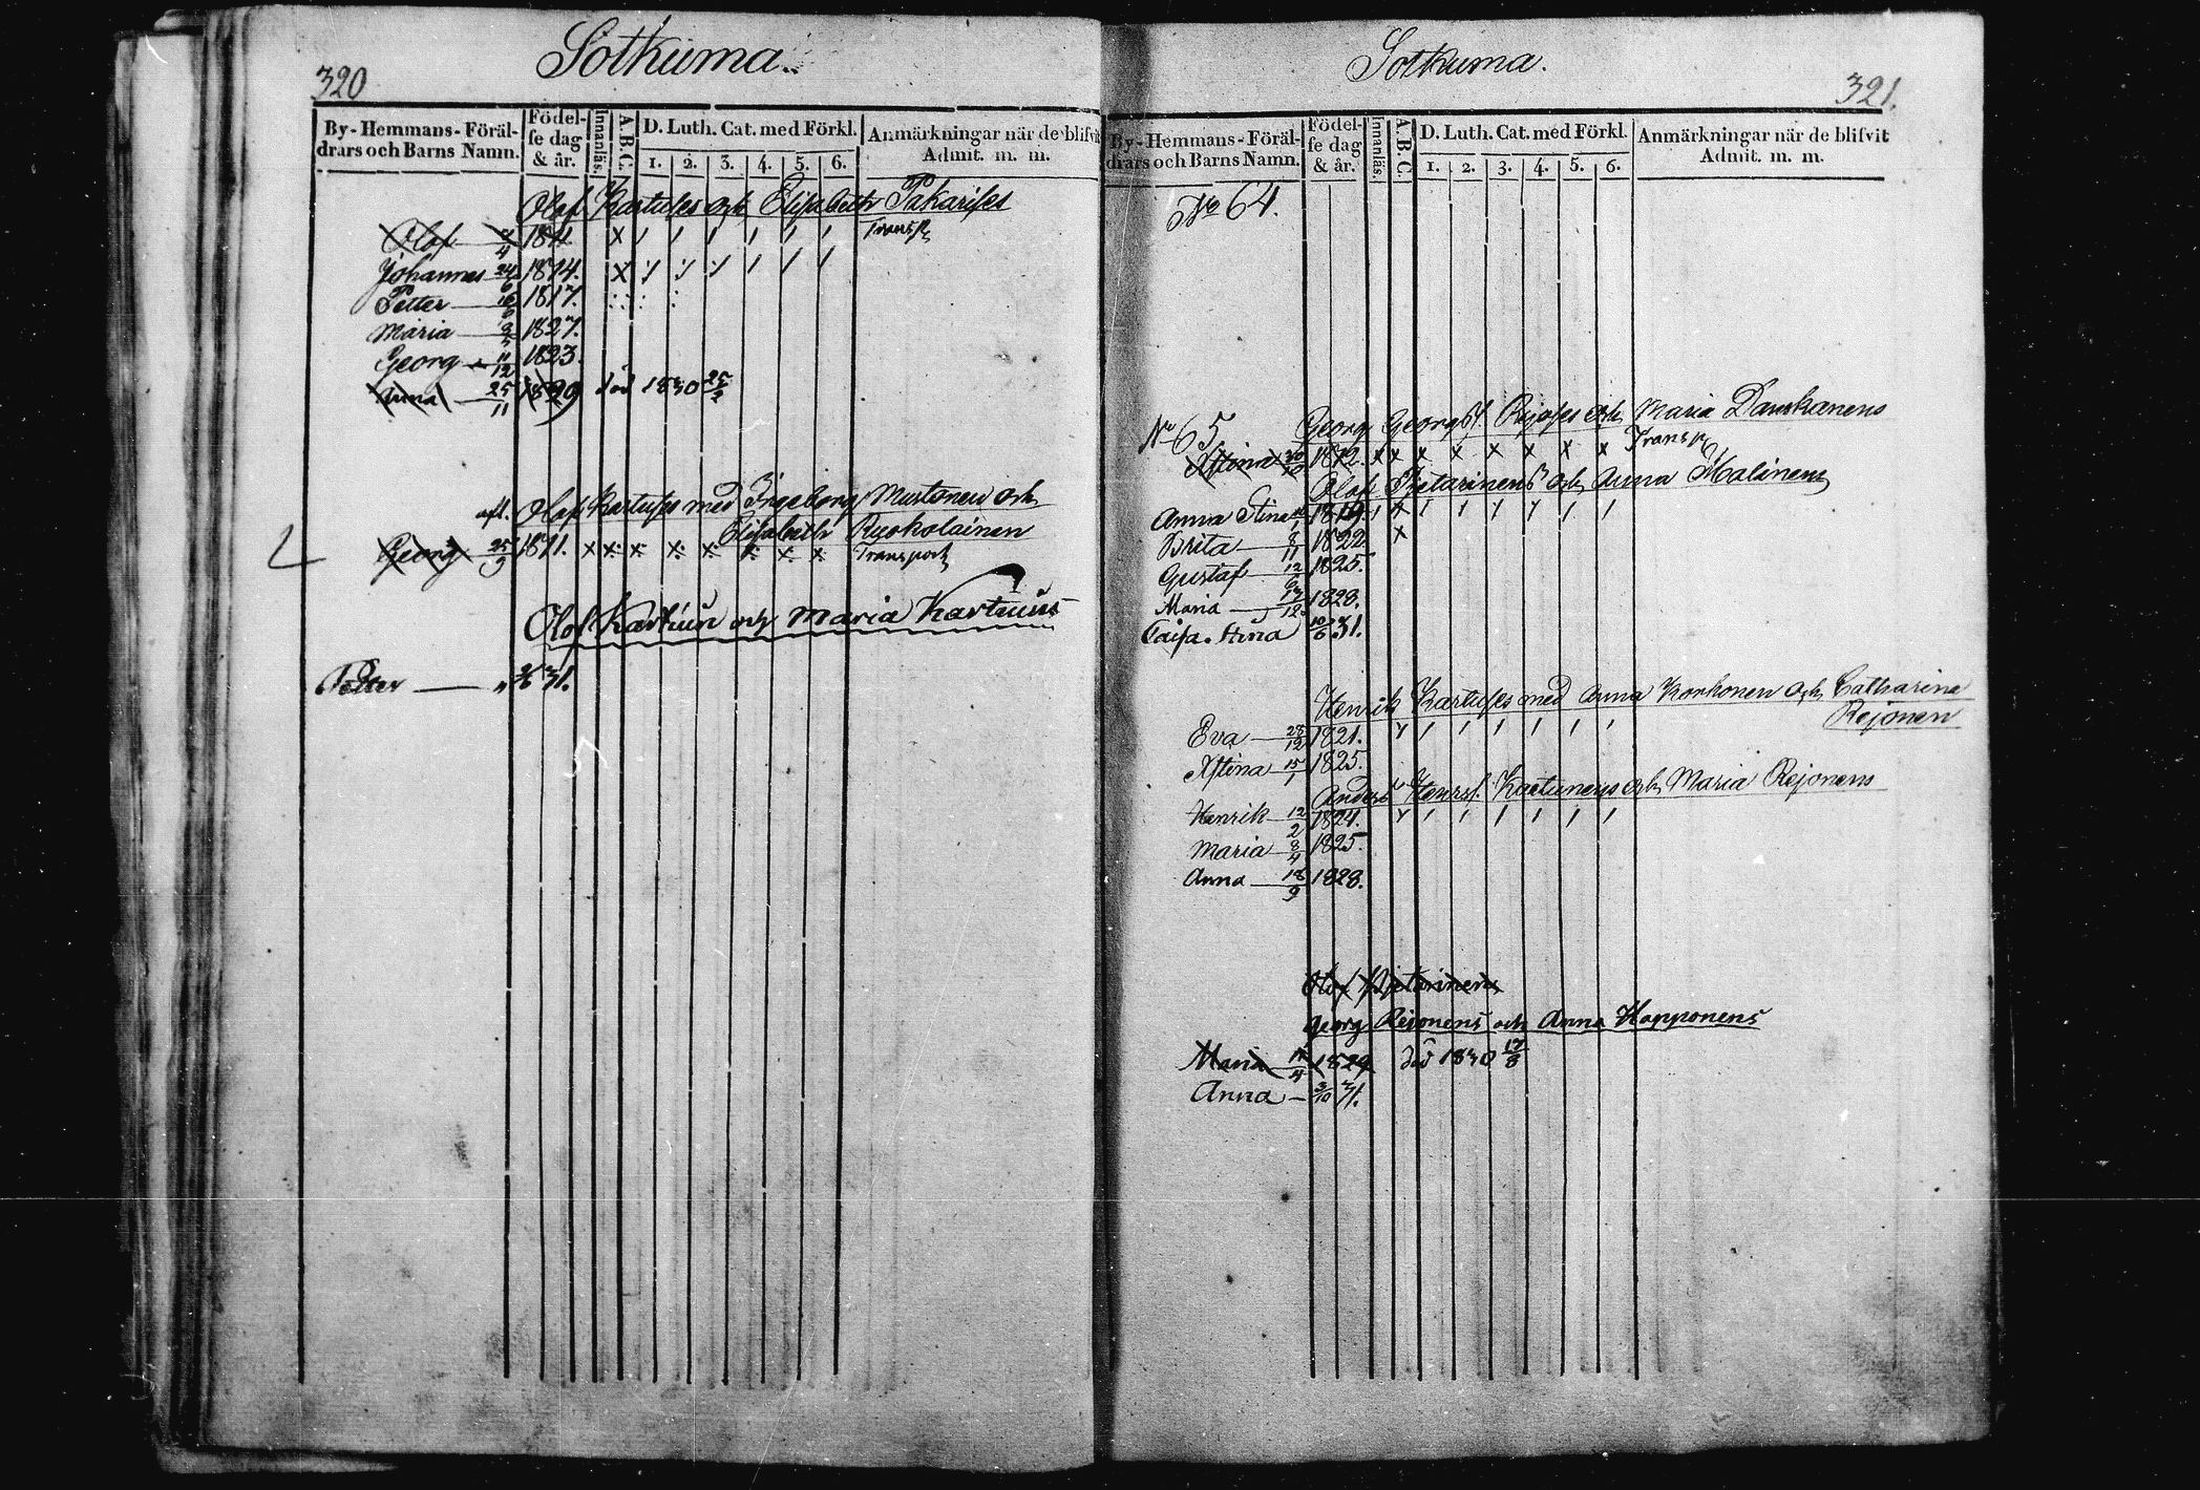 320
Sotkuma.
By-Hemmans-Föräl-
drars och Barns Namn.
Födel-
se dag
& år.
Innanläs.
A.B.C.
D. Luth. Cat. med Förkl.
1. 2. 3. 4. 5. 6.
Anmärkningar när de blifvit
Admit. m. m.
Olof Kartuses och Elisabeth Pakarises
Olof 4 1811. X / / / / / / Transp
Johannes 24/6 1814. X
Petter 16/6 1817.
Maria 1827.
Georg 11/12 1823.
Anna 25/11 1829 död 1830 25/2
aft. Olof Kartuses med Ingeborg Mustonen och
Elisabeth Ryökolainen
Georg 25/9 1811. x x x x x x x x Transport
Olof Kartuin och Maria Kartuins
Petter 31.
Sotkuma.
321.
By-Hemmans-Föräl-
drars och Barns Namn.
Födel-
se dag
& år.
Innanläs.
A.B.C.
D. Luth. Cat. med Förkl.
1. 2. 3. 4. 5. 6.
Anmärkningar när de blifvit
Admit. m. m.
No 64.
No 65
Georg Georgss. Rejoses och Maria Danskanens
Xstina 1812. x x x x x x x x Transp
Olof Pjetarinens och Anna Malinens
Anna Stina 1819.
Brita 8/11 1822. x
Gustaf 12/6 1825.
Maria 17/12 1828.
Caisa Stina 10/6 31.
Henrik Kartuses med Anna Korhonen och Catharina
Rejonen
Eva 25/12 1821.
Xstina 15/1 1825.
Anders Henrss. Kartunens och Maria Rejonens
Henrik 12/2 1821.
Maria 8/4 1825.
Anna 18/9 1828.
Olof Pjetarinens
Georg Rejonens och Anna Happonens
Maria 1829 död 1830 17/8
Anna 3/10 31.